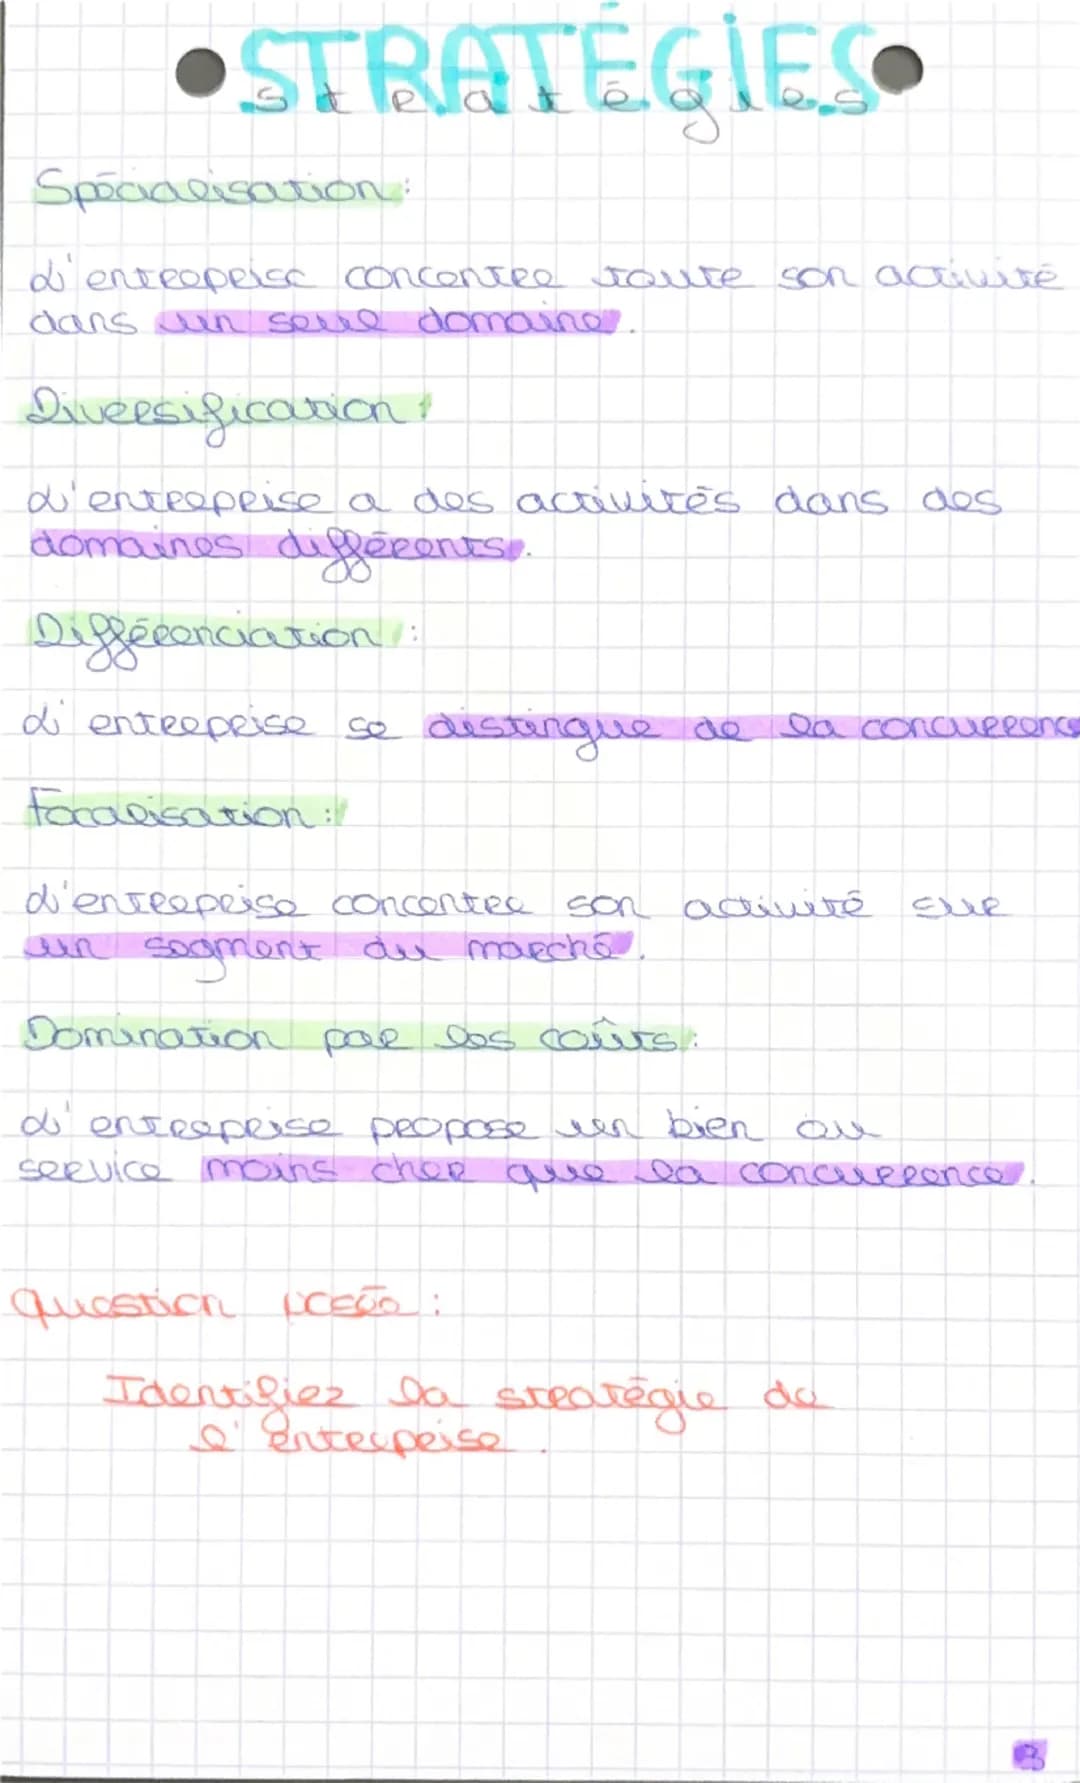 STRATÉGIES
stratégies
Spécialisation :
L'entreprise concentre toute son activité
dans un seul domaine.
Diversification :
L'entreprise a des activités dans des
domaines différents.
Différenciation :
L'entreprise se distingue de la concurrence
Focalisation :
L'entreprise concentre son activité sur
un segment du marché.
Domination par les coûts :
L'entreprise propose un bien ou
service moins cher que la concurrence.
Question posée :
Identifiez la stratégie de
l'entreprise.
3